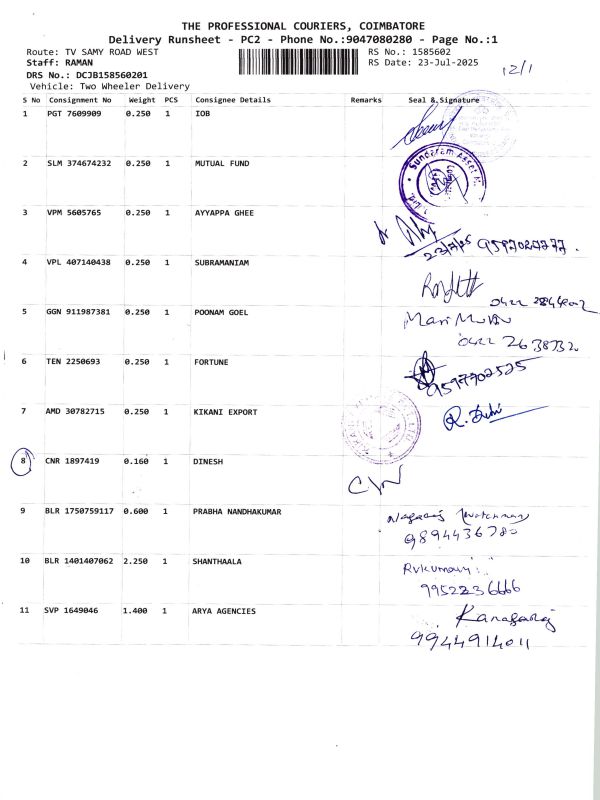 THE PROFESSIONAL COURIERS, COIMBATORE
Delivery Runsheet - PC2 - Phone No.:9047080280 - Page No.:1
Route: TV SAMY ROAD WEST
RS No.: 1585602
Staff: RAMAN
RS Date: 23-Jul-2025
12/1
DRS No.: DCJB158560201
Vehicle: Two Wheeler Delivery
S No Consignment No Weight PCS Consignee Details Remarks Seal & Signature
1 PGT 7609909 0.250 1 IOB
2 SLM 374674232 0.250 1 MUTUAL FUND
Sundaram Asset M
3 VPM 5605765 0.250 1 AYYAPPA GHEE
23/7/25 9597027277.
4 VPL 407140438 0.250 1 SUBRAMANIAM
0422
5 GGN 911987381 0.250 1 POONAM GOEL
0422 2638732
6 TEN 2250693 0.250 1 FORTUNE
9597702525
7 AMD 30782715 0.250 1 KIKANI EXPORT
8 CNR 1897419 0.160 1 DINESH
9 BLR 1750759117 0.600 1 PRABHA NANDHAKUMAR
Nagaraj Watchman
9894436780
10 BLR 1401407062 2.250 1 SHANTHAALA
9952236666
11 SVP 1649046 1.400 1 ARYA AGENCIES
Kanagaraj
9944914011